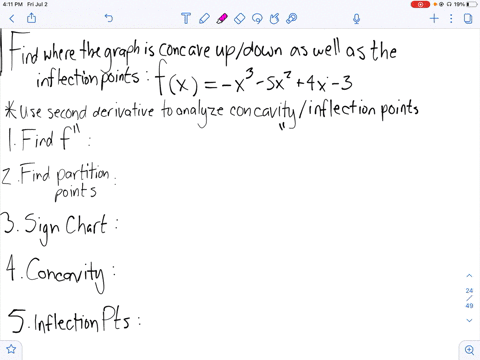 4:11 PM Fri Jul 2
19%
Find where the graph is concave up/down as well as the
inflection points: f(x) = -x³ -5x² +4x -3
*Use second derivative to analyze concavity/inflection points
1. Find f'' :
2. Find partition points :
3. Sign Chart :
4. Concavity :
5. Inflection Pts :
24
/
49